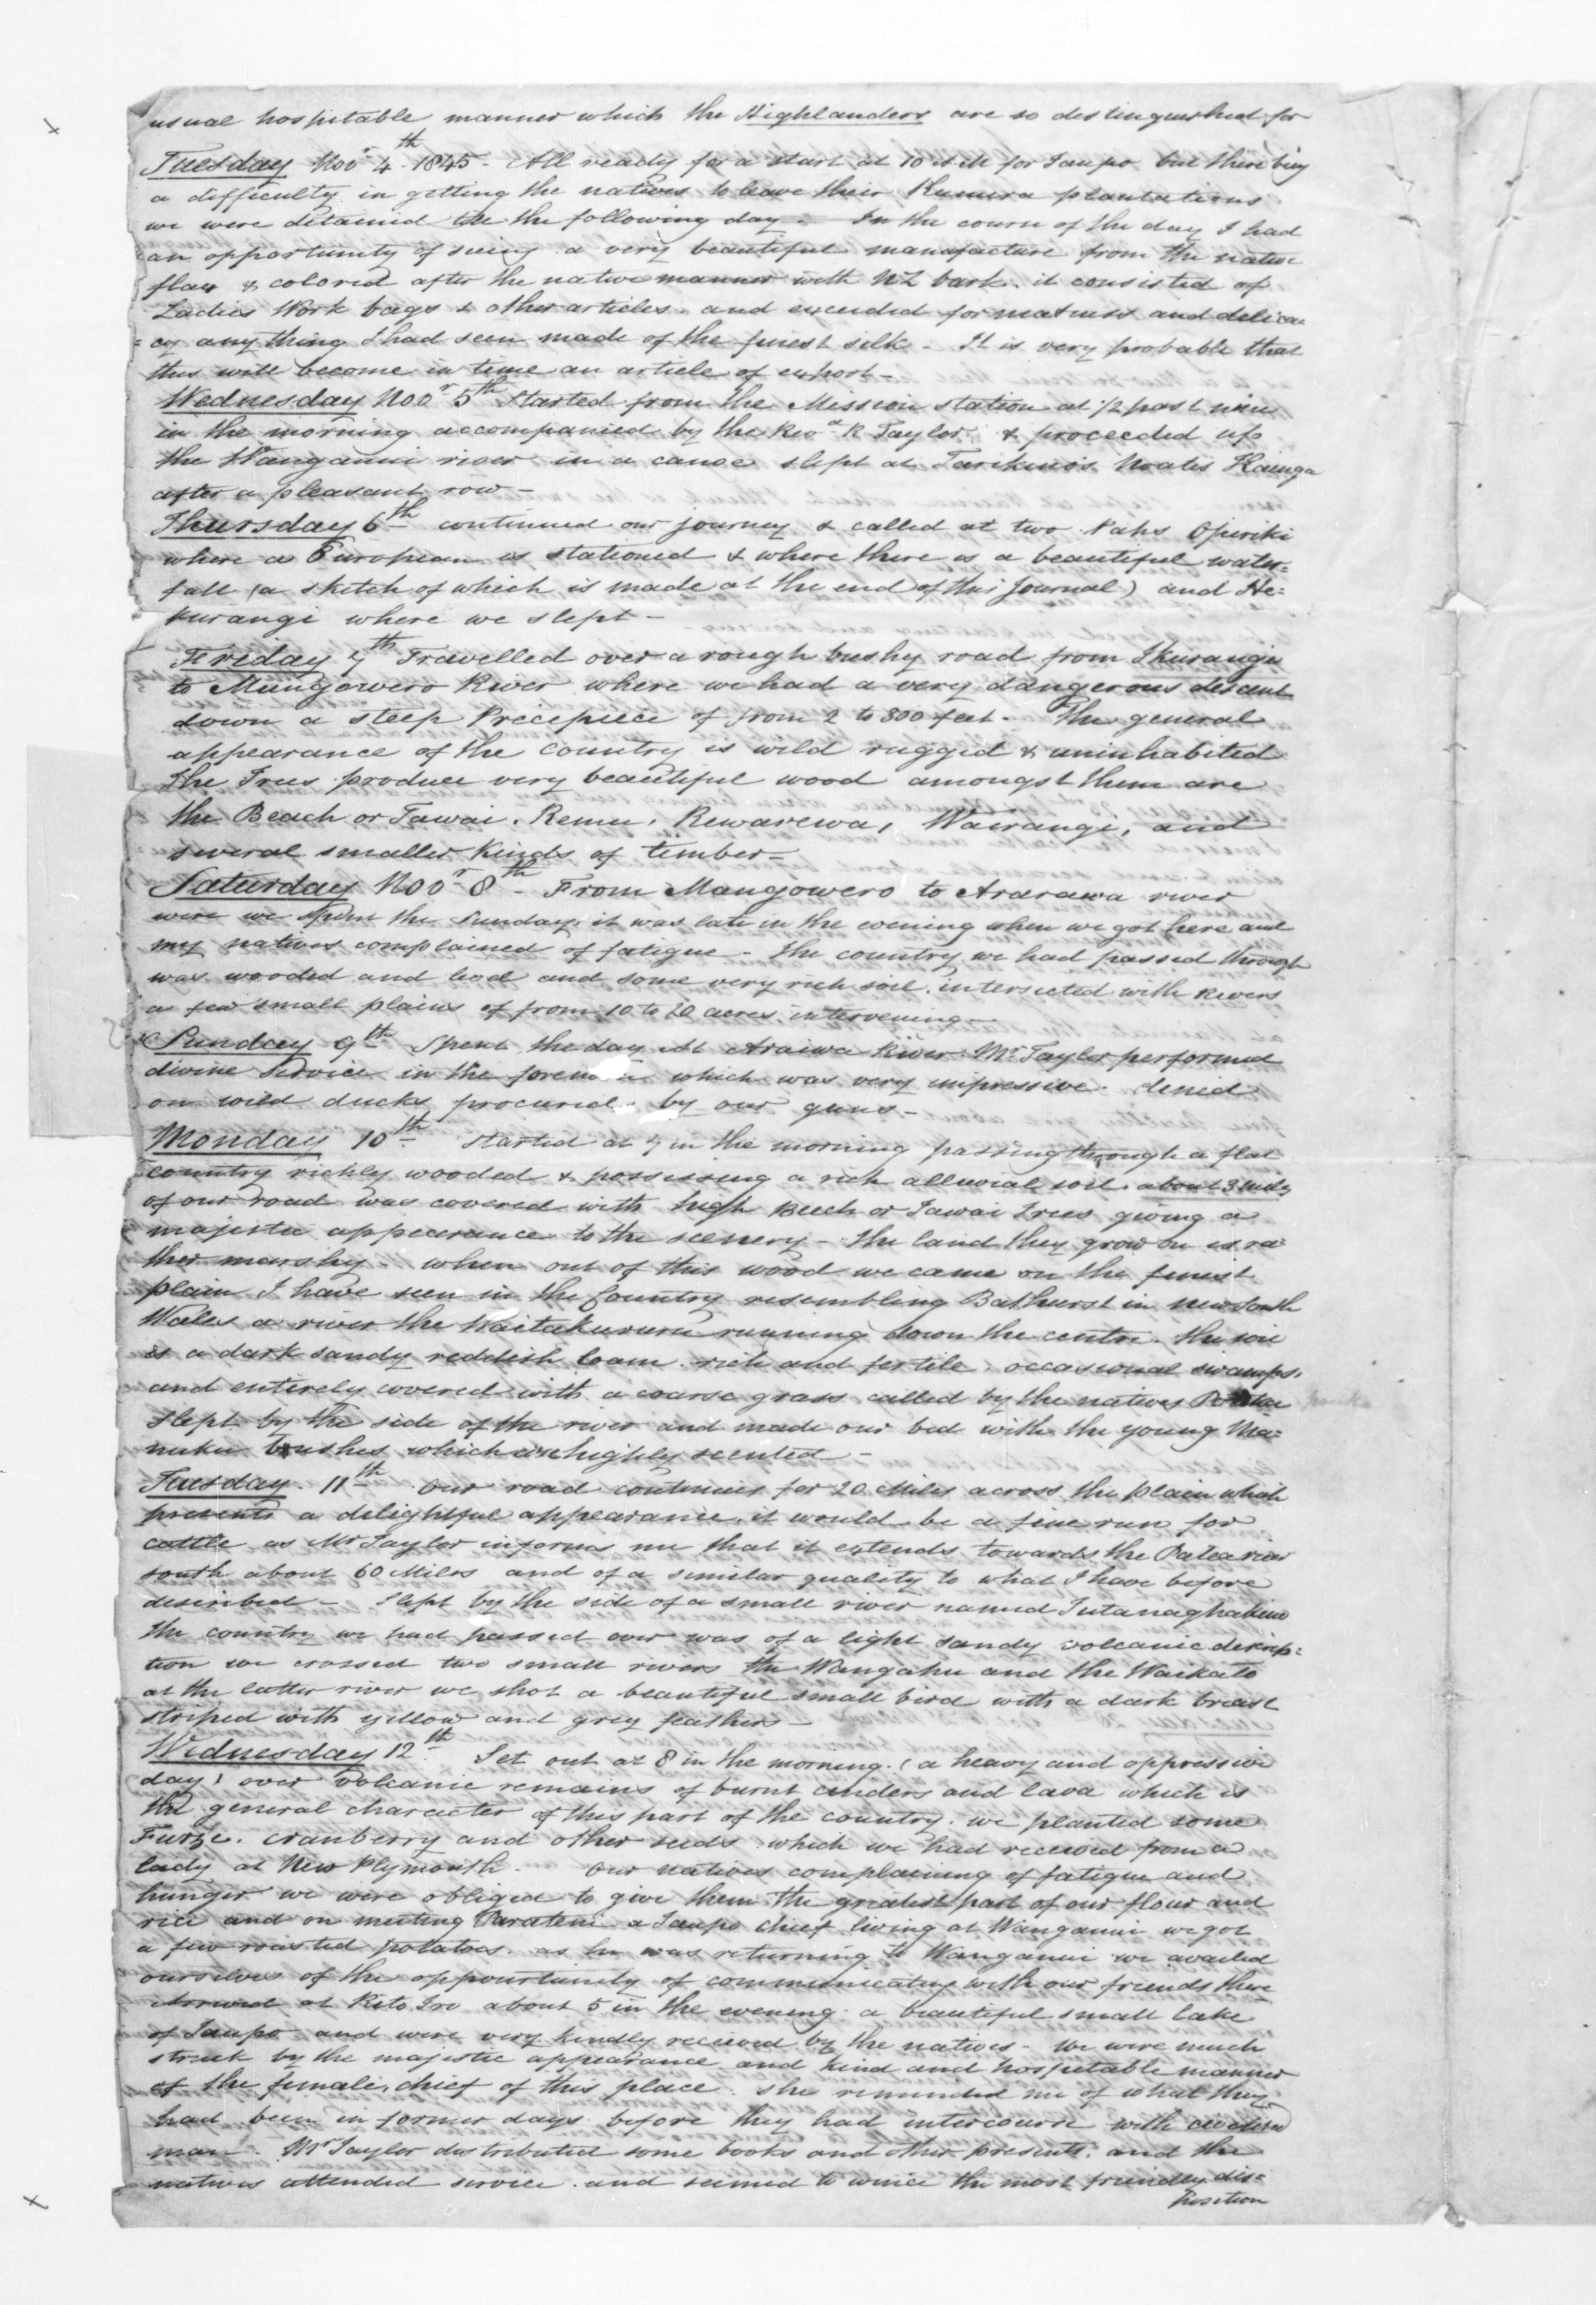 usual hospitable manner which the Highlanders are so destinguished for
Tuesday Novr 4th 1845. All ready for a start at 10 A M for Taupo but there being
a difficulty in getting the natives to leave their Kumera plantations
we were detained till the following day. In the course of the day I had
an opportunity of seeing a very beautiful manufacture from the native
flax & colored after the native manner with NZ bark. it consisted of
Ladies Work bags & other articles. and exceeded for neatness and delica=
=cy any thing I had seen made of the finest silk. It is very probable that
this will become in time an article of export-
Wednesday Novr 5th Started from the Mission station at 1/2 past nine
in the morning accompanied by the Revd R Taylor. & proceeded up
the Wanganui river in a canoe slept at Kainga
after a pleasant row-
Thursday 6th continued our journey & called at two Pahs Operiki
where a European is stationed & where there is a beautiful water=
fall (a sketch of which is made at the end of this Journal) and He=
kurangi where we slept-
Friday 7th Travelled over a rough bushy road from Ikurangi
to Mungowero River where we had a very dangerous descent
down a steep Precepiece of from 2 to 300 feet. The general
appearance of the country is wild rugged & uninhabited
The Trees produce very beautiful wood amongst them are
the Beach or Tawai. Remu, Rewarewa, Wairangi, and
several smaller kinds of timber-
Saturday Novr 8th- From Mangowero to Ararawa river
were we spent the Sunday, it was late in the evening when we got here and
my natives complained of fatigue- the country we had passed through
was wooded and level and some very rich soil. intersected with Rivers
a few small plains of from 10 to 20 acres intervening-
Sunday 9th Spent the day At Araiwa River. Mr Taylor performed
divine Service in the which was very impressive. denied
on wild ducks procured by our guns-
Monday 10th started at 7 in the morning passing through a flat
country richly wooded & possessing a rich alluvial soil. about 3 miles
of our road was covered with high Beech or Tawai Trees giving a
majestic appearance to the scenery- the land they grow on is ra=
ther marshy- when out of this wood we came on the finest
plain I have seen in the Country resembling Bathurst in New South
Wales a river the Waitakururu running down the centre. the soil
is a dark sandy reddish loam. rich and fertile. occasional swamps.
and entirely covered with a coarse grass called by the natives
Slept by the side of the river and made our bed with the young Ma=
nuka bushes which are highly scented-
Tuesday. 11th our road continues for 20 Miles across the plain which
presents a delightful appearance. it would be a fine run for
cattle as Mr Taylor informs me that it extends towards the Patea river
south about 60 Miles and of a similar quality to what I have before
described- Slept by the side of a small river named
the country we had passed over was of a light sandy volcanic descrip=
tion we crossed two small rivers the Wangahu and the Waikato
at the latter river we shot a beautiful small bird with a dark breast
striped with yellow and grey feathers-
Wednesday 12th. Set out at 8 in the morning. (a heavy and oppressive
day) over volcanic remains of burnt cinders and lava which is
the general character of this part of the country. we planted some
Furze. cranberry and other seeds which we had received from a
lady at New Plymouth. Our natives complaining of fatigue and
hunger we were obliged to give them the greatest part of our flour and
rice and on meeting a Taupo chief living at Wanganui we got
a few roasted potatoes. as he was returning to Wanganui we availed
ourselves of the oppourtunity of communicating with our friends there
Arrived at about 5 in the evening. a beautiful small lake
of Taupo and were very kindly received by the natives- We were much
struck by the majestic appearance and kind and hospetable manner
of the female chief of this place. she reminded me of what they
had been in former days before they had intercourse with civilized
man. Mr Taylor distributed some books and other presents. and the
natives attended service. and seemed to evince the most friendly dis=
position